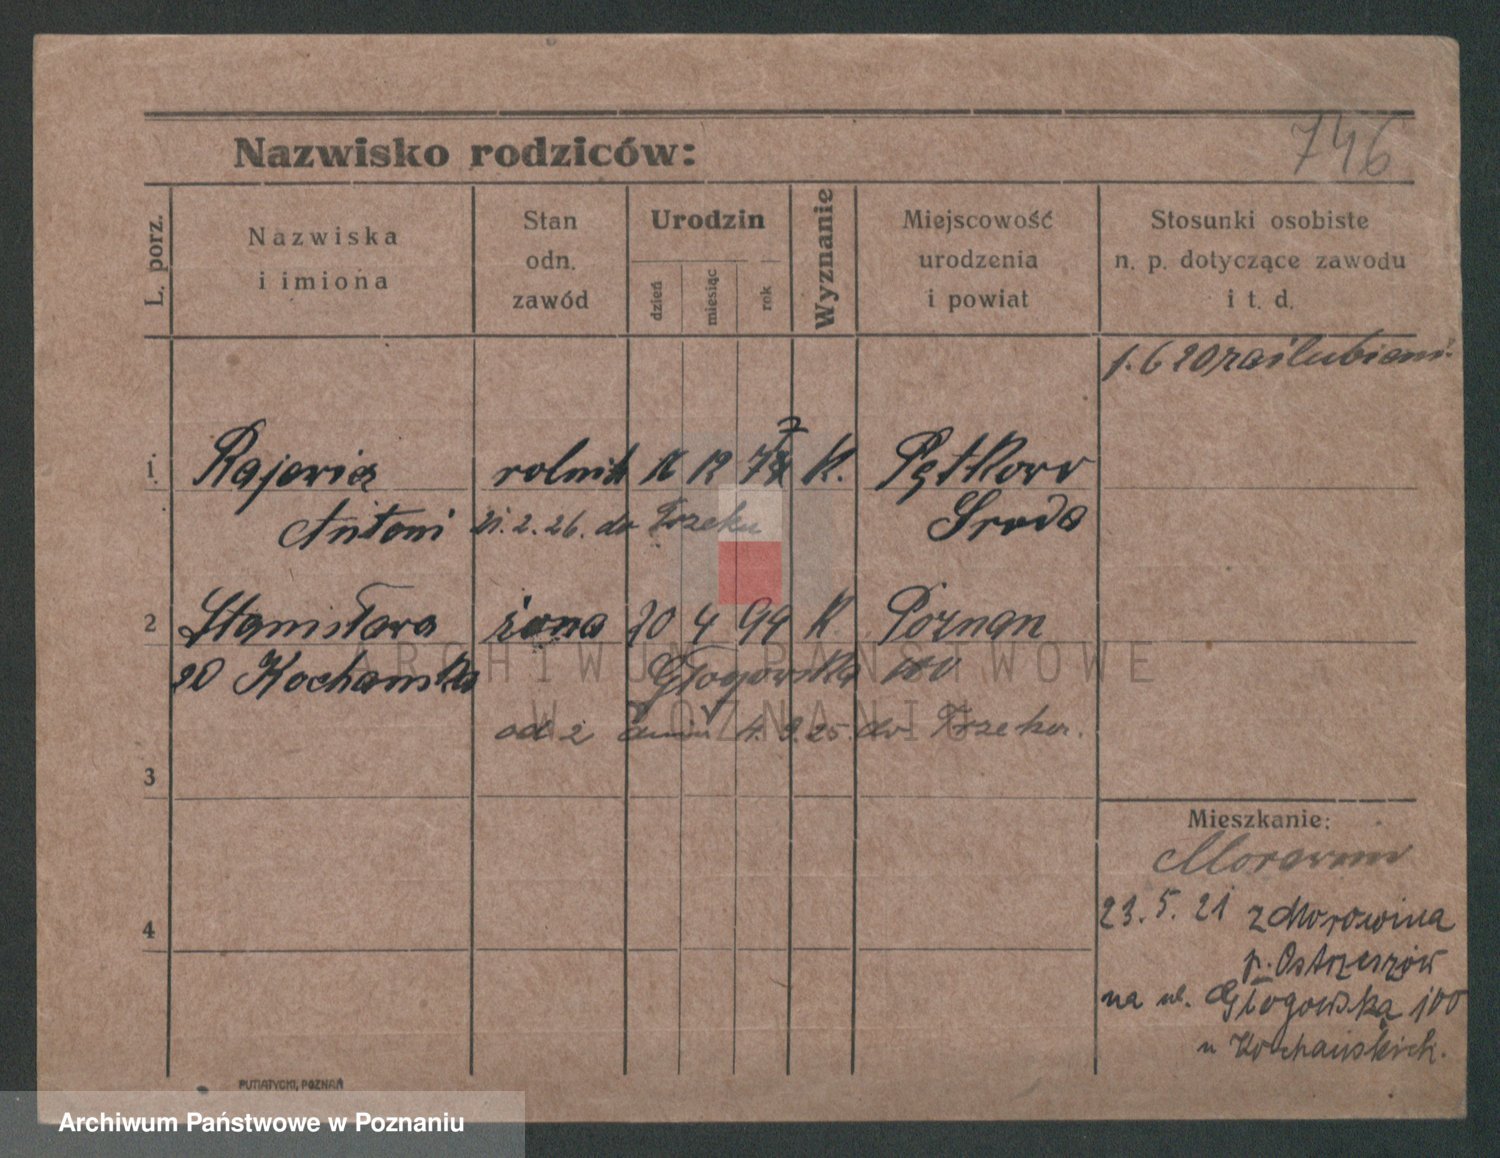 746
Nazwisko rodziców:
L. porz.
Nazwiska
i imiona
Stan
odn.
zawód
Urodzin
dzień
miesiąc
rok
Wyznanie
Miejscowość
urodzenia
i powiat
Stosunki osobiste
n. p. dotyczące zawodu
i t. d.
1. 6 20 zaślubieni
1 Rajewicz rolnik 12 K. Pętkowo
Antoni 21. 2. 26. do Trzeku Środa
2 Stanisława żona 20 4 99 K. Poznań
zd Kochanska Głogowska 100
od 2 4. 9. 25. do Trzeku.
3
4
Mieszkanie:
23. 5. 21 z Morowina
p. Ostrzeszów
na ul. Głogowską 100
u Kochańskich.
PUTIATYCKI, POZNAŃ
ARCHIWUM PAŃSTWOWE
W POZNANIU
Archiwum Państwowe w Poznaniu